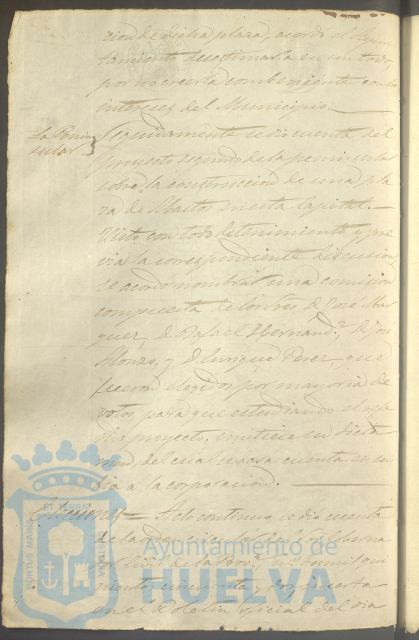 cion de dicha plaza, acordó el Ayun-
tamiento desestimarla en un todo
por no creerla combeniente a los
intereses del Municipio.
La Penin-
sular
Seguidamente se dio cuenta del
proyecto segundo de la peninsular
sobre la construccion de una pla
za de Abastos en esta Capital.
Visto con todo detenimiento y pre
via la correspondiente discusion
se acordó nombrar una comision
compuesta de los Sres. D. José Mar
quez, D. Rafael Hernandz. D. José
Alonzo, y D. Enrique Perez, que
fueron elegidos por mayoria de
votos, para que estudiando el
dio proyecto, emitiese su dicta
men, del cual se dara cuenta en su
dia a la corporacion.
Acto continuo se dio cuenta
de la
dor Civil de la Prov.
inserta
en el Boletin oficial del dia
PORTUS MARIS ET TERRAE CUSTODIA
Ayuntamiento de
HUELVA